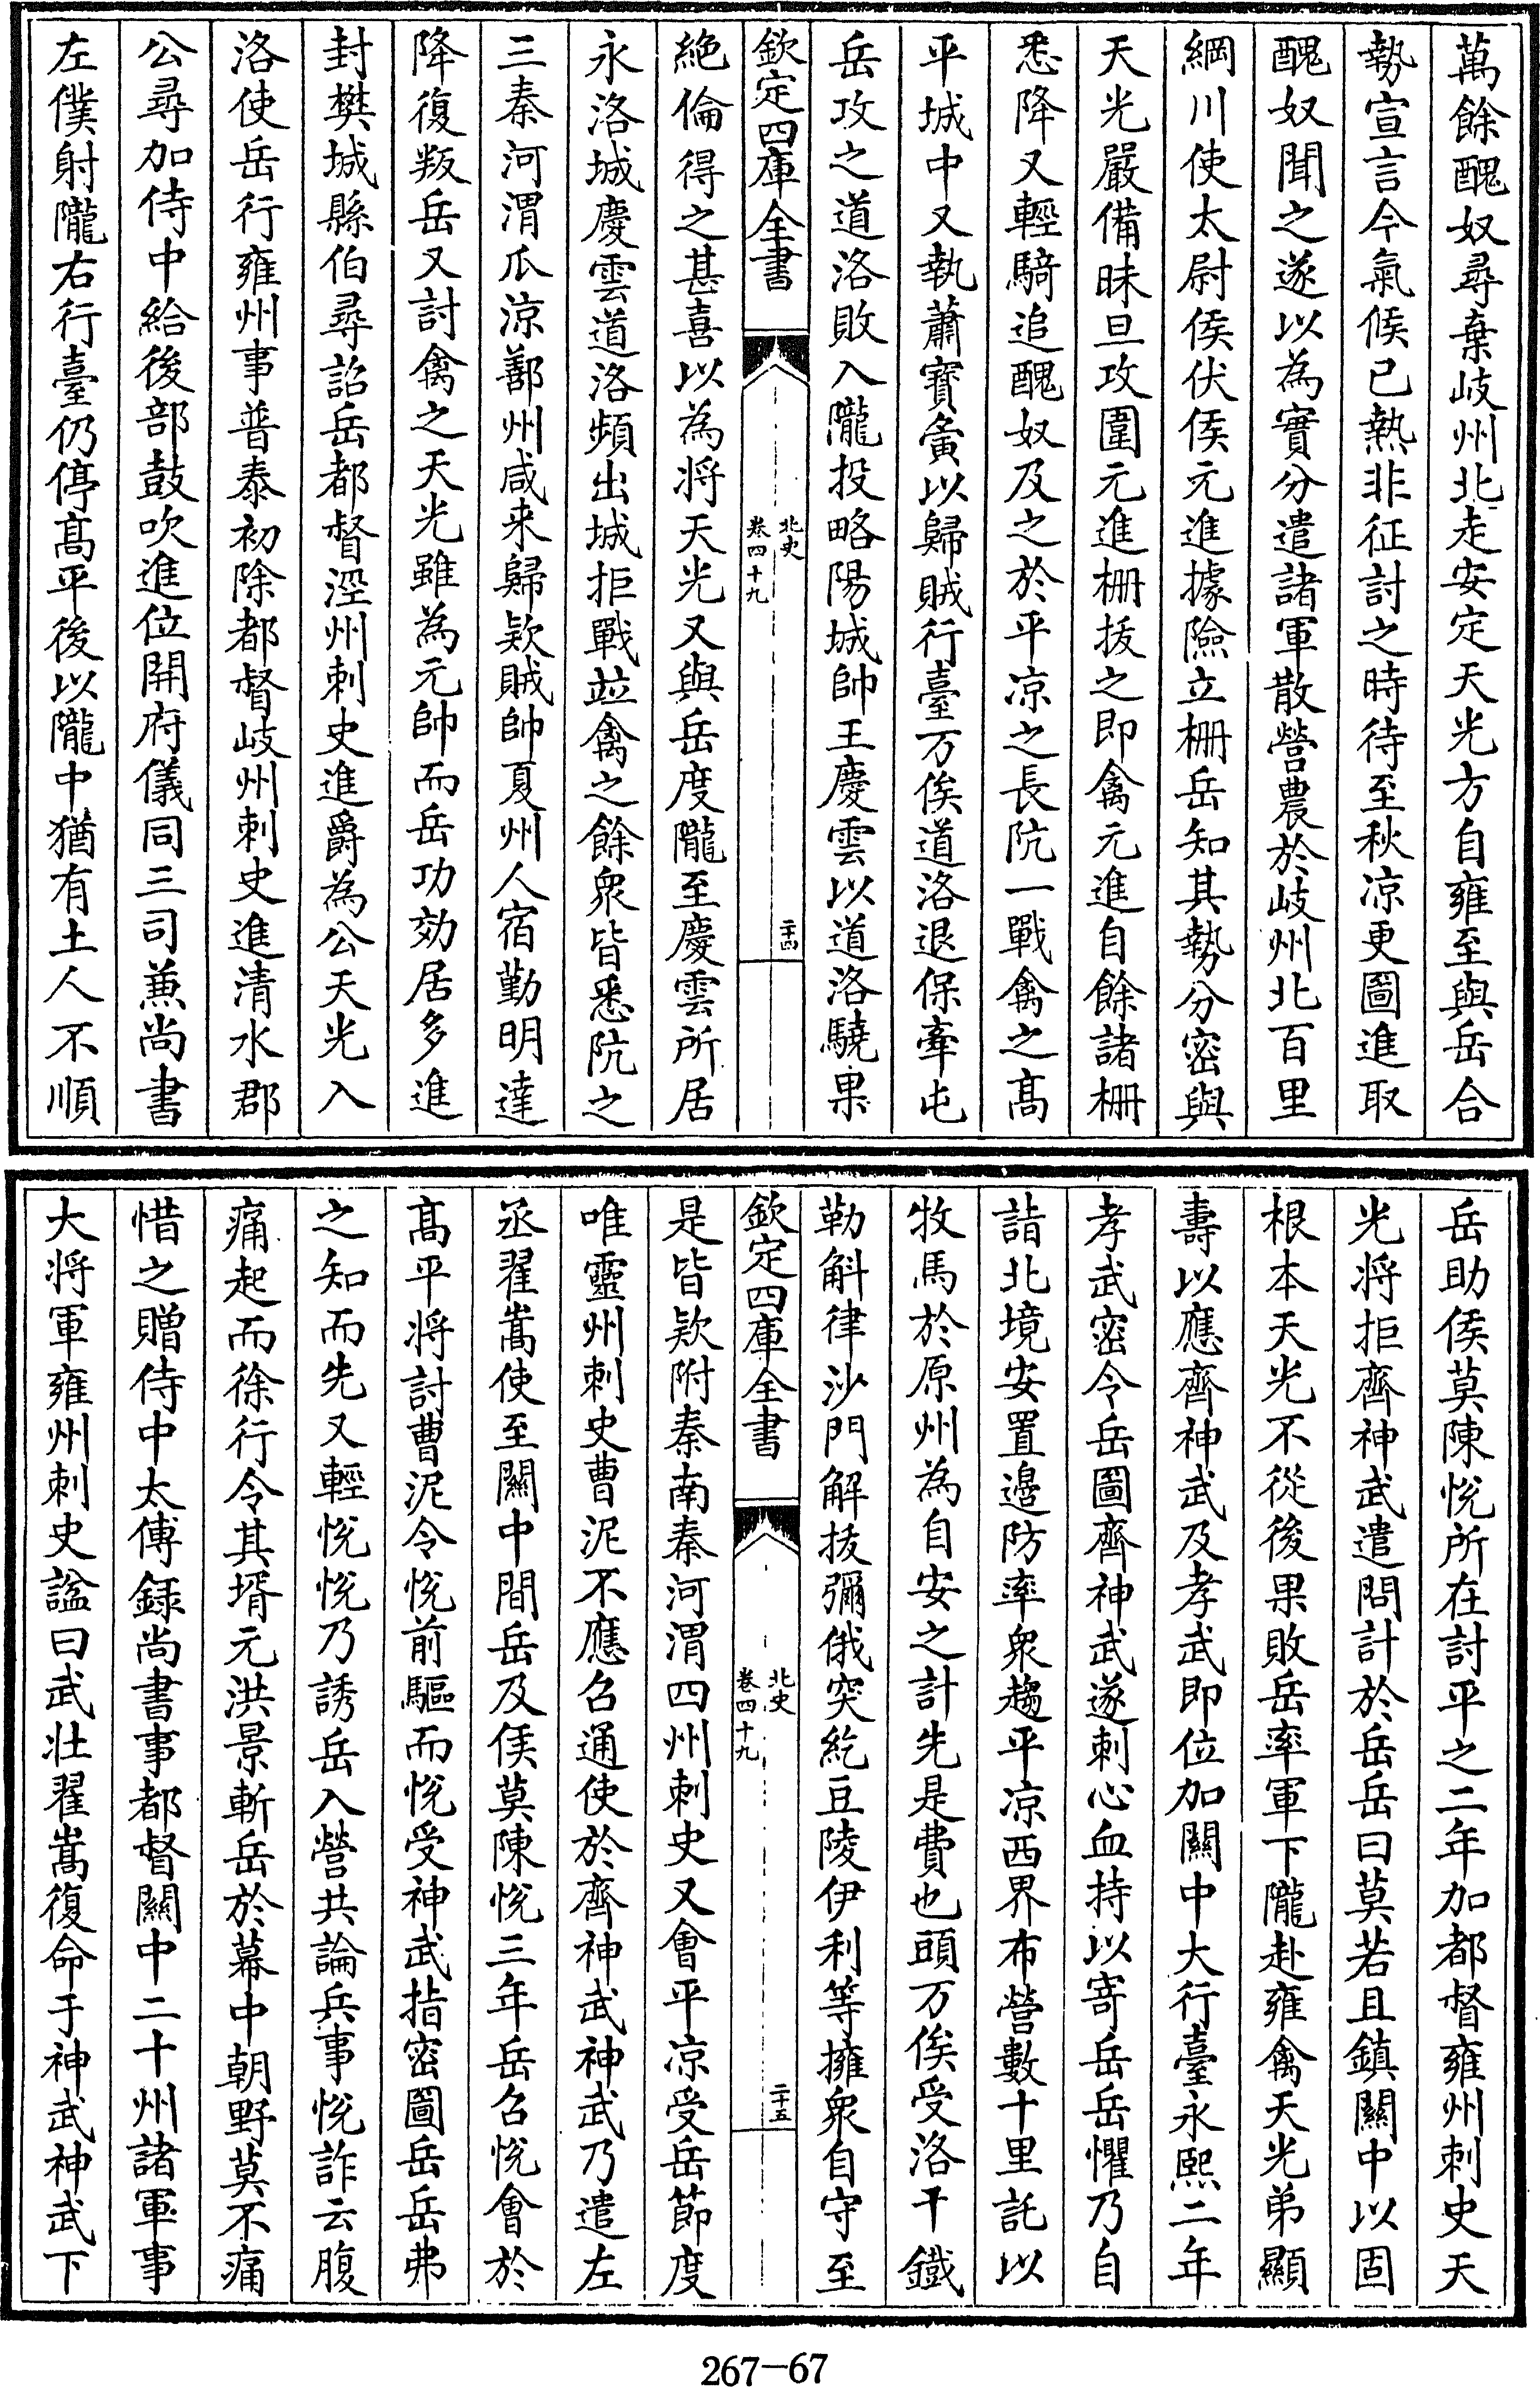 萬餘醜奴尋棄岐州北走安定天光方自雍至與岳合
勢宣言今氣候已熱非征討之時待至秋凉更圖進取
醜奴聞之遂以為實分遣諸軍散營農於岐州北百里
綱川使太尉侯伏侯元進據險立栅岳知其勢分密與
天光嚴備昧旦攻圍元進栅拔之即禽元進自餘諸栅
悉降又輕騎追醜奴及之於平凉之長阬一戰禽之髙
平城中又執蕭寶夤以歸賊行臺万俟道洛退保牽屯
岳攻之道洛敗入隴投略陽城帥王慶雲以道洛驍果
欽定四庫全書
北史
卷四十九
二十四
絶倫得之甚喜以為將天光又與岳度隴至慶雲所居
永洛城慶雲道洛頻出城拒戰竝禽之餘衆皆悉阬之
三秦河渭瓜凉鄯州咸来歸欵賊帥夏州人宿勤明達
降復叛岳又討禽之天光雖為元帥而岳功効居多進
封樊城縣伯尋詔岳都督涇州刺史進爵為公天光入
洛使岳行雍州事普泰初除都督岐州刺史進清水郡
公尋加侍中給後部鼓吹進位開府儀同三司兼尚書
左僕射隴右行臺仍停髙平後以隴中猶有土人不順
岳助侯莫陳悦所在討平之二年加都督雍州刺史天
光將拒齊神武遣問計於岳岳曰莫若且鎮關中以固
根本天光不從後果敗岳率軍下隴赴雍禽天光弟顯
壽以應齊神武及孝武即位加關中大行臺永熙二年
孝武密令岳圖齊神武遂刺心血持以寄岳岳懼乃自
詣北境安置邊防率衆趨平凉西界布營數十里託以
牧馬於原州為自安之計先是費也頭万俟受洛干鐵
勒斛律沙門解拔彌俄突紇豆陵伊利等擁衆自守至
欽定四庫全書
北史
卷四十九
二十五
是皆欵附秦南秦河渭四州刺史又會平凉受岳節度
唯靈州刺史曹泥不應召通使於齊神武神武乃遣左
丞翟嵩使至關中間岳及侯莫陳悦三年岳召悦會於
髙平將討曹泥令悦前驅而悦受神武指密圖岳岳弗
之知而先又輕悦悦乃誘岳入營共論兵事悦詐云腹
痛起而徐行令其壻元洪景斬岳於幕中朝野莫不痛
惜之贈侍中太傅録尚書事都督關中二十州諸軍事
大將軍雍州刺史謚曰武壯翟嵩復命于神武神武下
267-67